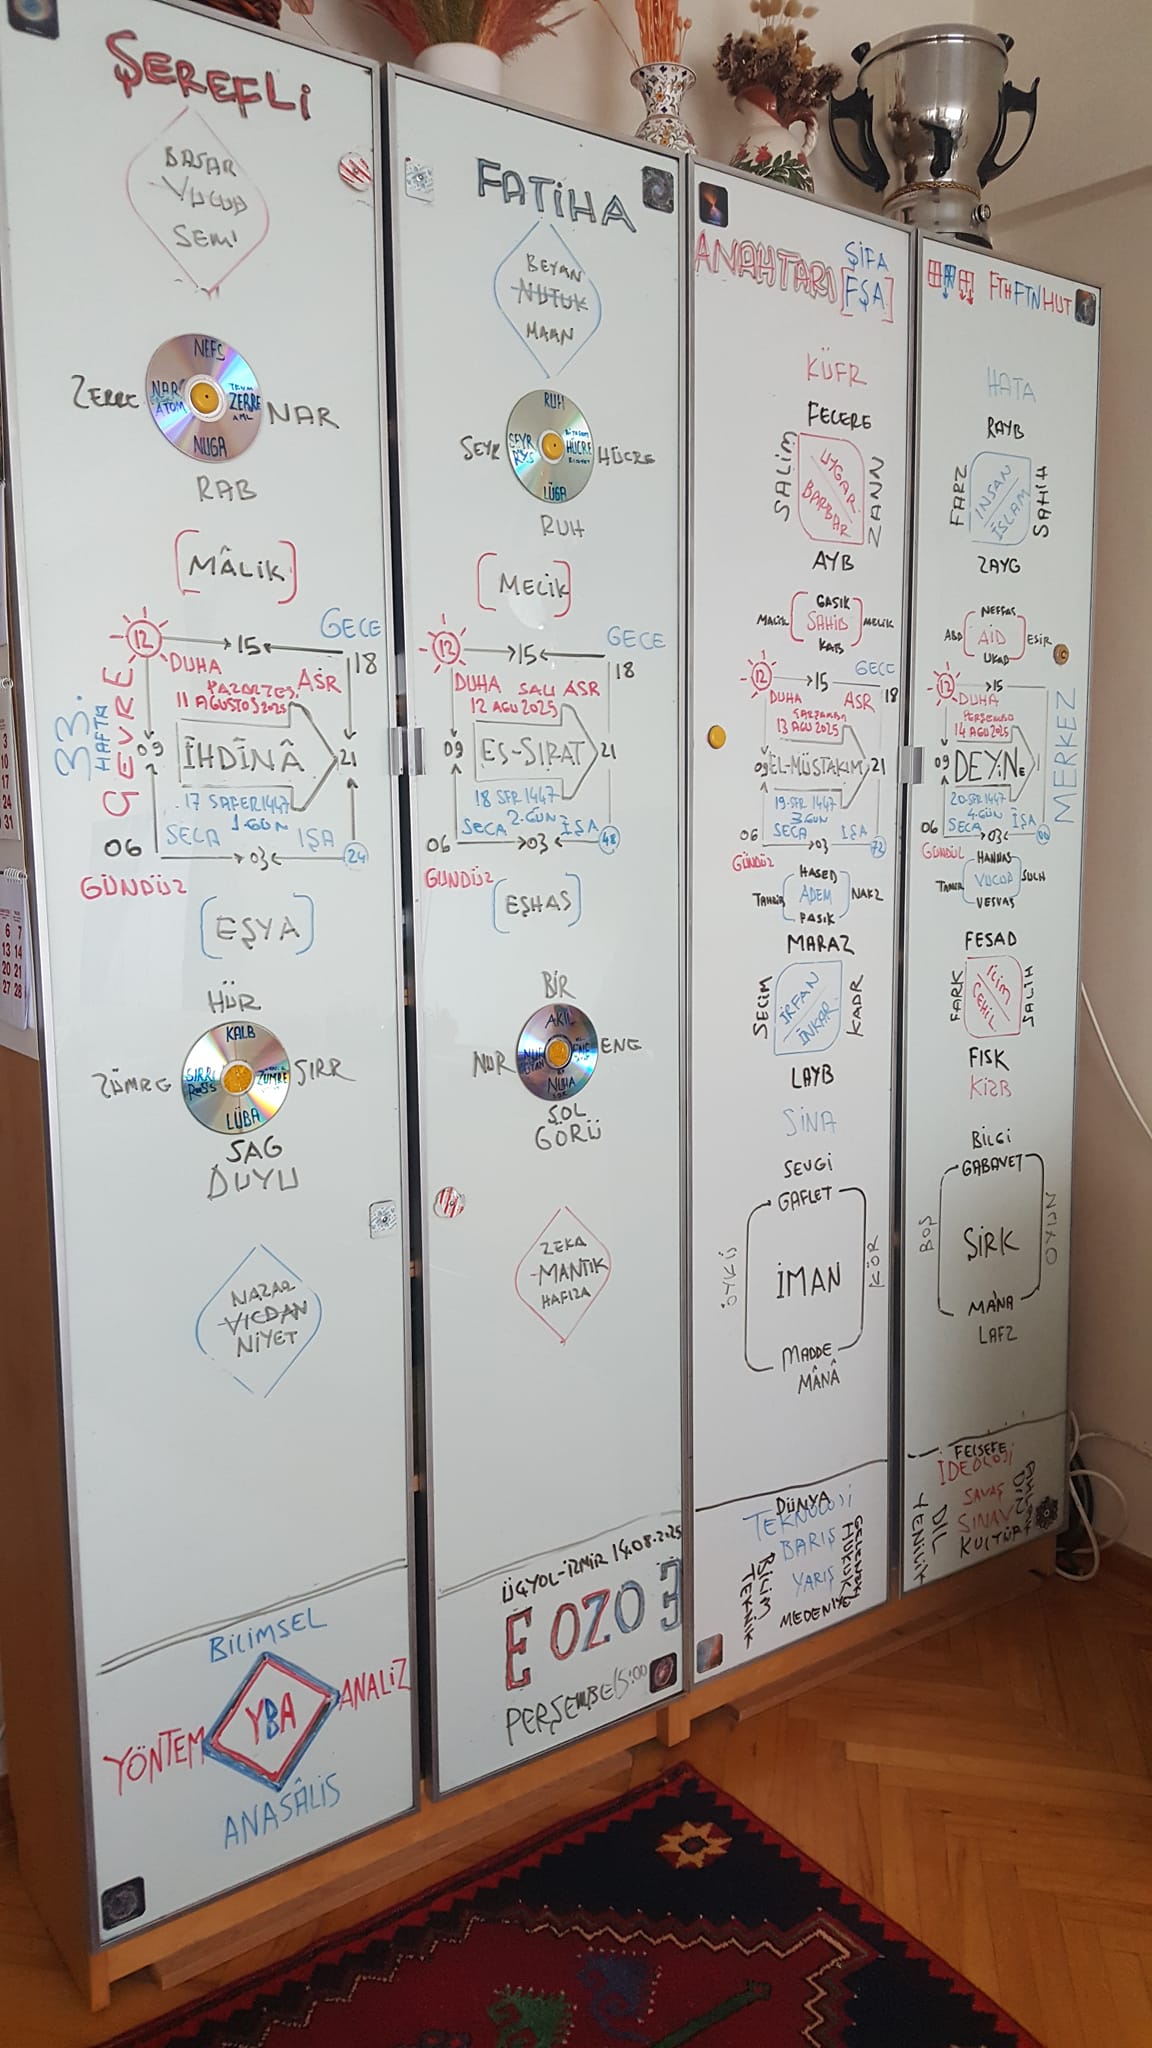 ŞEREFLİ
BASAR
VUCUD
SEMİ
NEFS
ZERRE
NAR
ATOM
ZERRE
NAR
NUGA
RAB
[MÂLİK]
12
15
GECE
18
DUHA
ASR
11 AGUSTOS 2025
33.
HAFTA
ÇEVRE
09
İHDİNÂ
21
17 SAFER 1447
1.GÜN
SECA
İŞA
06
03
24
GÜNDÜZ
[EŞYA]
HÜR
KALB
ZÜMRE
SIRR
ZÜMRE
SIRR
LÜBA
SAG
DUYU
NAZAR
VİCDAN
NİYET
BİLİMSEL
YÖNTEM
YBA
ANALİZ
ANASÂLİS
FATİHA
BEYAN
NUTUK
MAAN
RUH
SEYR
SEYR
HÜCRE
HÜCRE
LÜGA
RUH
[MELİK]
12
15
GECE
18
DUHA
SALI
ASR
12 AGU 2025
09
ES-SIRAT
21
18 SFR 1447
2.GÜN
SECA
İŞA
06
03
48
GÜNDÜZ
[EŞHAS]
BİR
AKIL
NUR
NUR
ENG
ENG
NUHA
SOL
GÖRÜ
ZEKA
MANTIK
HAFIZA
ÜÇYOL-İZMİR 14.08.2025
EOZO3
PERŞEMBE 15:00
ANAHTARI
ŞİFA
[FŞA]
KÜFR
FECERE
SALİM
UYGAR
BARBAR
ZANN
AYB
GASIK
MALİK
SAHİB
MELİK
KAB
12
15
GECE
18
DUHA
ASR
ÇARŞAMBA
13 AGU 2025
09
EL-MÜSTAKIM
21
19-SFR 1447
3.GÜN
SECA
İŞA
06
03
72
GÜNDÜZ
HASED
TAHRİR
ADEM
NAKZ
FASIK
MARAZ
SECİM
İRFAN
İNKAR
KADR
LAYB
SİNA
SEVGİ
GAFLET
ÖYKÜ
İMAN
KÖR
MADDE
MÂNÂ
DÜNYA
TEKNOLOJİ
BARIŞ
YARIŞ
BİLİM
TEKNİK
HUKUK
MEDENİYET
FTHFTNHUT
HATA
RAYB
FARZ
İNSAN
İSLAM
SAHİH
ZAYG
NEFFAS
ABD
AİD
ESİR
UKAD
12
15
DUHA
PERŞEMBE
14 AGU 2025
09
DEYNe
MERKEZ
20-SFR 1447
4.GÜN
SECA
İŞA
06
03
GÜNDÜZ
HANNAS
TAMİR
VUCUD
SULH
VESVAS
FESAD
FARK
İLİM
CEHİL
SALİH
FISK
KIZB
BİLGİ
GABAVET
BOŞ
ŞİRK
OYUN
MÂNA
LAFZ
FELSEFE
İDEOLOJİ
SAVAŞ
SINAV
KÜLTÜR
DİL
YENİLİK
DİN
AHLAK